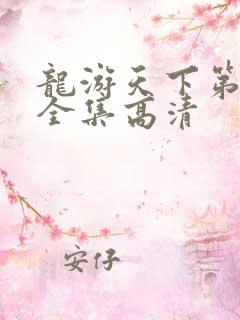 龍游天下第
全集高清
安仔